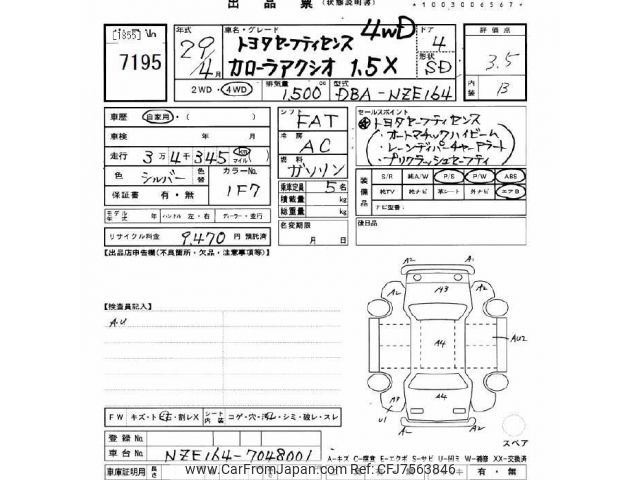 出品票 (状態説明書)
*1003006567*
7195
年式 車名・グレード 4WD ドア 評価点
29/4月 トヨタセーフティセンス 4 3.5
カローラアクシオ 1.5X 形状 SD 内装 B
2WD・4WD 排気量 1,500 型式 DBA-NZE164
車歴 自家用・( )
シフト FAT
セールスポイント
トヨタセーフティセンス
・オートマチックハイビーム
・レーンデパーチャーアラート
・プリクラッシュセーフティ
車検 年 月
冷房 AC
走行 3万4千345 km マイル
燃料 ガソリン
色 シルバー 色替 カラーNo. 1F7
保証書 有・無
乗車定員 5名
積載量 kg
総重量 kg
装備品 S/R 純A/W P/S P/W ABS
純TV 純ナビ 革シート 外ナビ エアB
ナビ型番:
モデル年式 年 ハンドル 左・右 ディーラー・並行
名変期限 月 日
後日品
リサイクル料金 9,470 円 預託済
【出品店申告欄(不具箇所・欠品・注意事項等)】
【検査員記入】
AU
A2 A1
A2 A3
A4 AU2
A3 A4
U1 A2 A2
スペア
FW キズ・トビ石・割レX シート内装 コゲ・穴・汚レ・シミ・破レ・スレ
登録No.
車台No. NZE164-7048001
A-キズ C-腐食 E-エクボ S-サビ U-凹ミ W-補修 XX-交換済
車庫証明用 有・無
www.CarFromJapan.com Ref:CFJ7563846